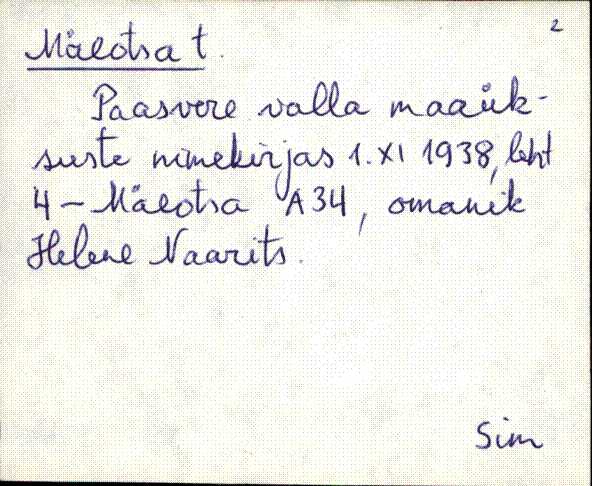 2
Mäeotsa t.
Paasvere valla maaük-
suste nimekirjas 1. XI 1938, leht
4 - Mäeotsa A34, omanik
Helene Naarits.
Sim